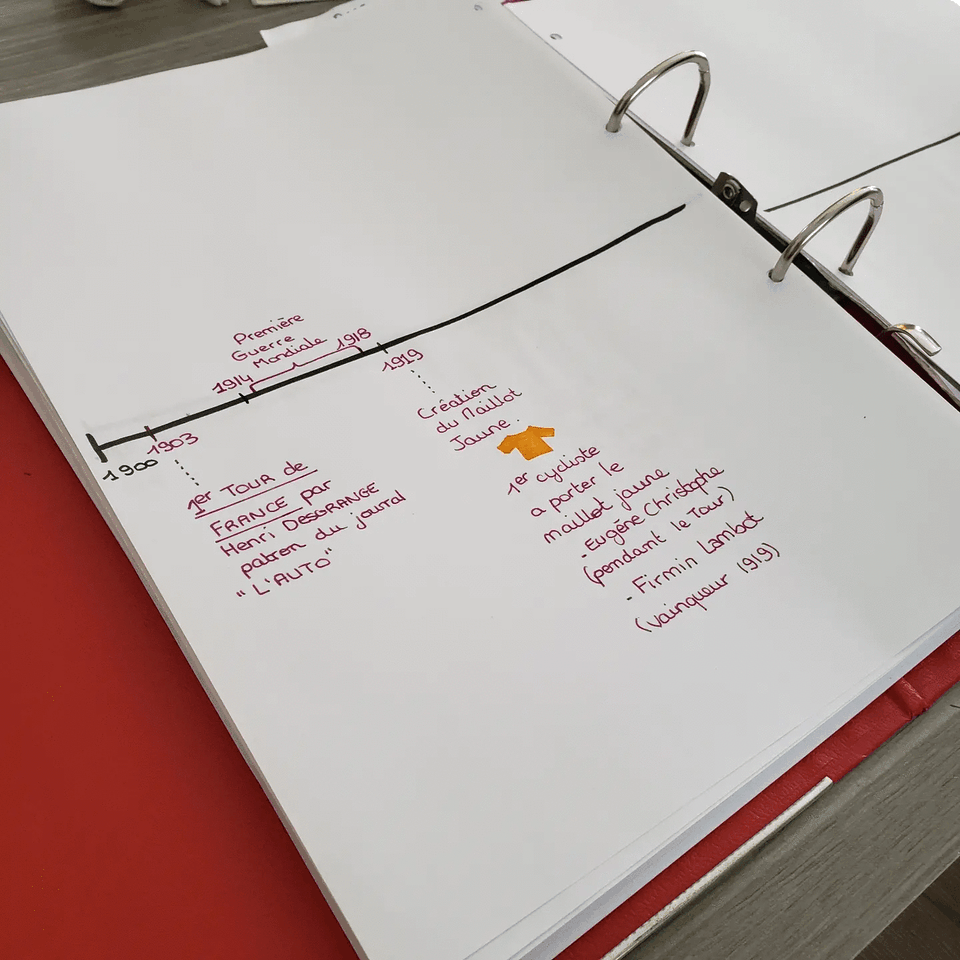 Première
Guerre
Mondiale
1914
1918
1900
1903
1er TOUR de
FRANCE par
Henri DESGRANGE
patron du journal
"L'AUTO"
1919
Création
du Maillot
Jaune.
1er cycliste
a porter le
maillot jaune
-Eugène Christophe
(pendant le Tour)
- Firmin Lambot
(vainqueur 1919)